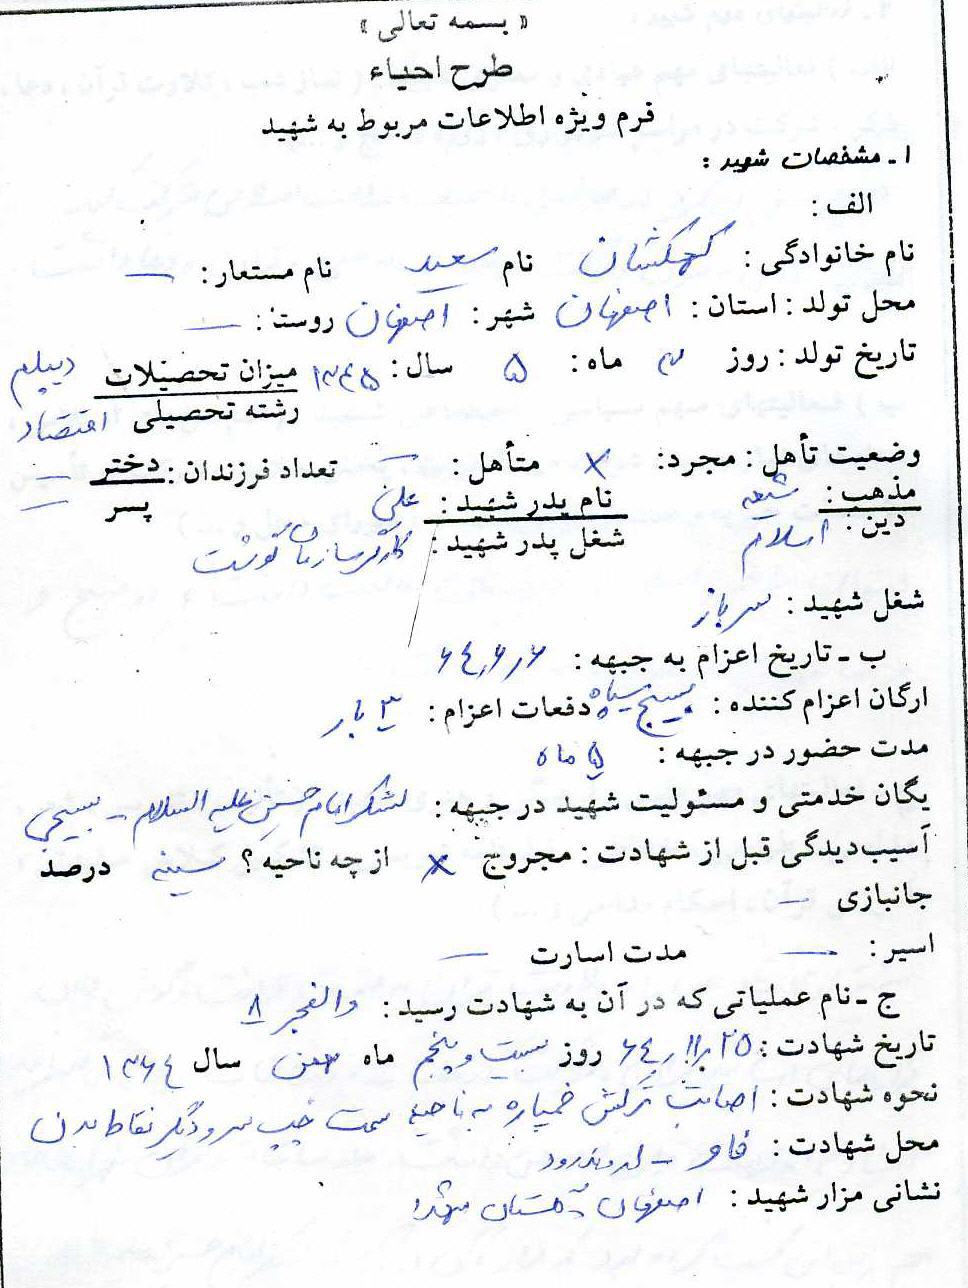 « بسمه تعالی »
طرح احیاء
فرم ویژه اطلاعات مربوط به شهید
۱ ـ مشخصات شهید :
الف :
نام خانوادگی : کهکشان نام سعید نام مستعار : —
محل تولد : استان : اصفهان شهر : اصفهان روستا : —
تاریخ تولد : روز ۳ ماه : ۵ سال : ۱۳۴۵ میزان تحصیلات دیپلم
رشته تحصیلی اقتصاد
وضعیت تأهل : مجرد : × متأهل : — تعداد فرزندان : دختر —
پسر —
مذهب : شیعه نام پدر شهید : علی
دین : اسلام شغل پدر شهید : کارگر سازمان گوشت
شغل شهید : سرباز
ب ـ تاریخ اعزام به جبهه : ۶۴/۶/۶
ارگان اعزام کننده : بسیج سپاه دفعات اعزام : ۳ بار
مدت حضور در جبهه : ۵ ماه
یگان خدمتی و مسئولیت شهید در جبهه : لشکر امام حسین علیه السلام ـ بسیجی
آسیب‌دیدگی قبل از شهادت : مجروح × از چه ناحیه ؟ سینه درصد
جانبازی —
اسیر : — مدت اسارت —
ج ـ نام عملیاتی که در آن به شهادت رسید : والفجر ۸
تاریخ شهادت : ۶۴/۱۱/۲۵ روز بیست و پنجم ماه بهمن سال ۱۳۶۴
نحوه شهادت : اصابت ترکش خمپاره به ناحیه سمت چپ سر و دیگر نقاط بدن
محل شهادت : فاو ـ اروندرود
نشانی مزار شهید : اصفهان گلستان شهدا